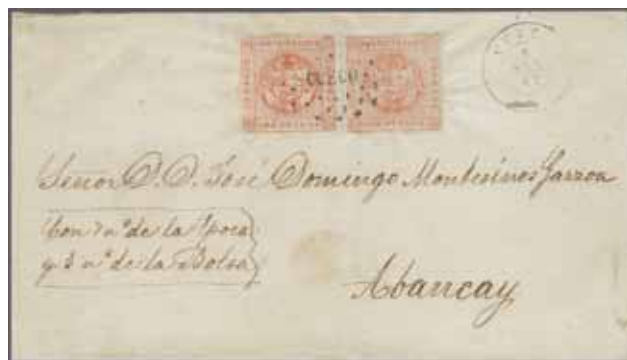 CUZCO
CUZCO
Señor D. D. José Domingo Montesinos
Con 7 nº de la Epoca
y 3 nº de la Bolsa
Abancay